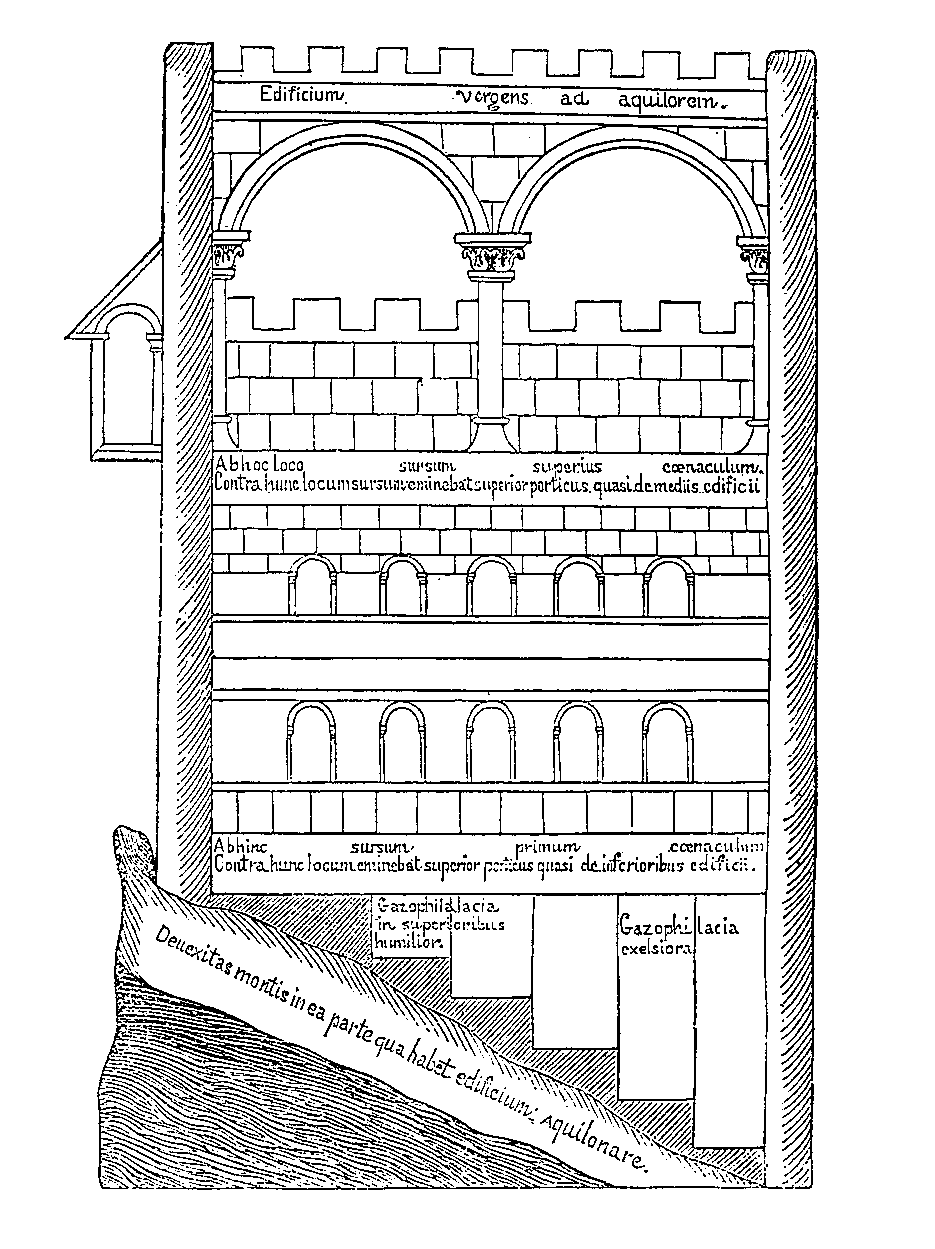 Edificium. vergens ad aquilorem.
Abhoc loco sursum superius cœnaculum.
Contra hunc locum sursum eminebat superior porticus, quasi de mediis edificii
Abhinc sursum primum cœnaculum
Contra hunc locum eminebat superior porticus quasi de inferioribus edificii.
Gazophilalacia
in superioribus
humilior.
Gazophilacia
exelsiora
Deuexitas montis in ea parte qua habet edificium: aquilonare.